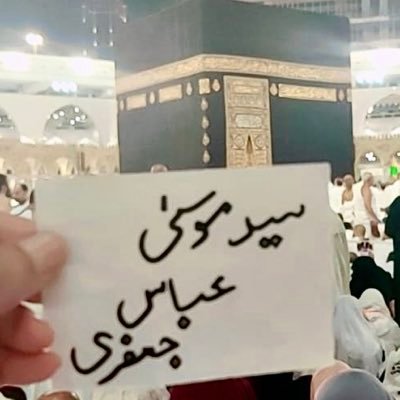 سید موسیٰ
عباس
جعفری